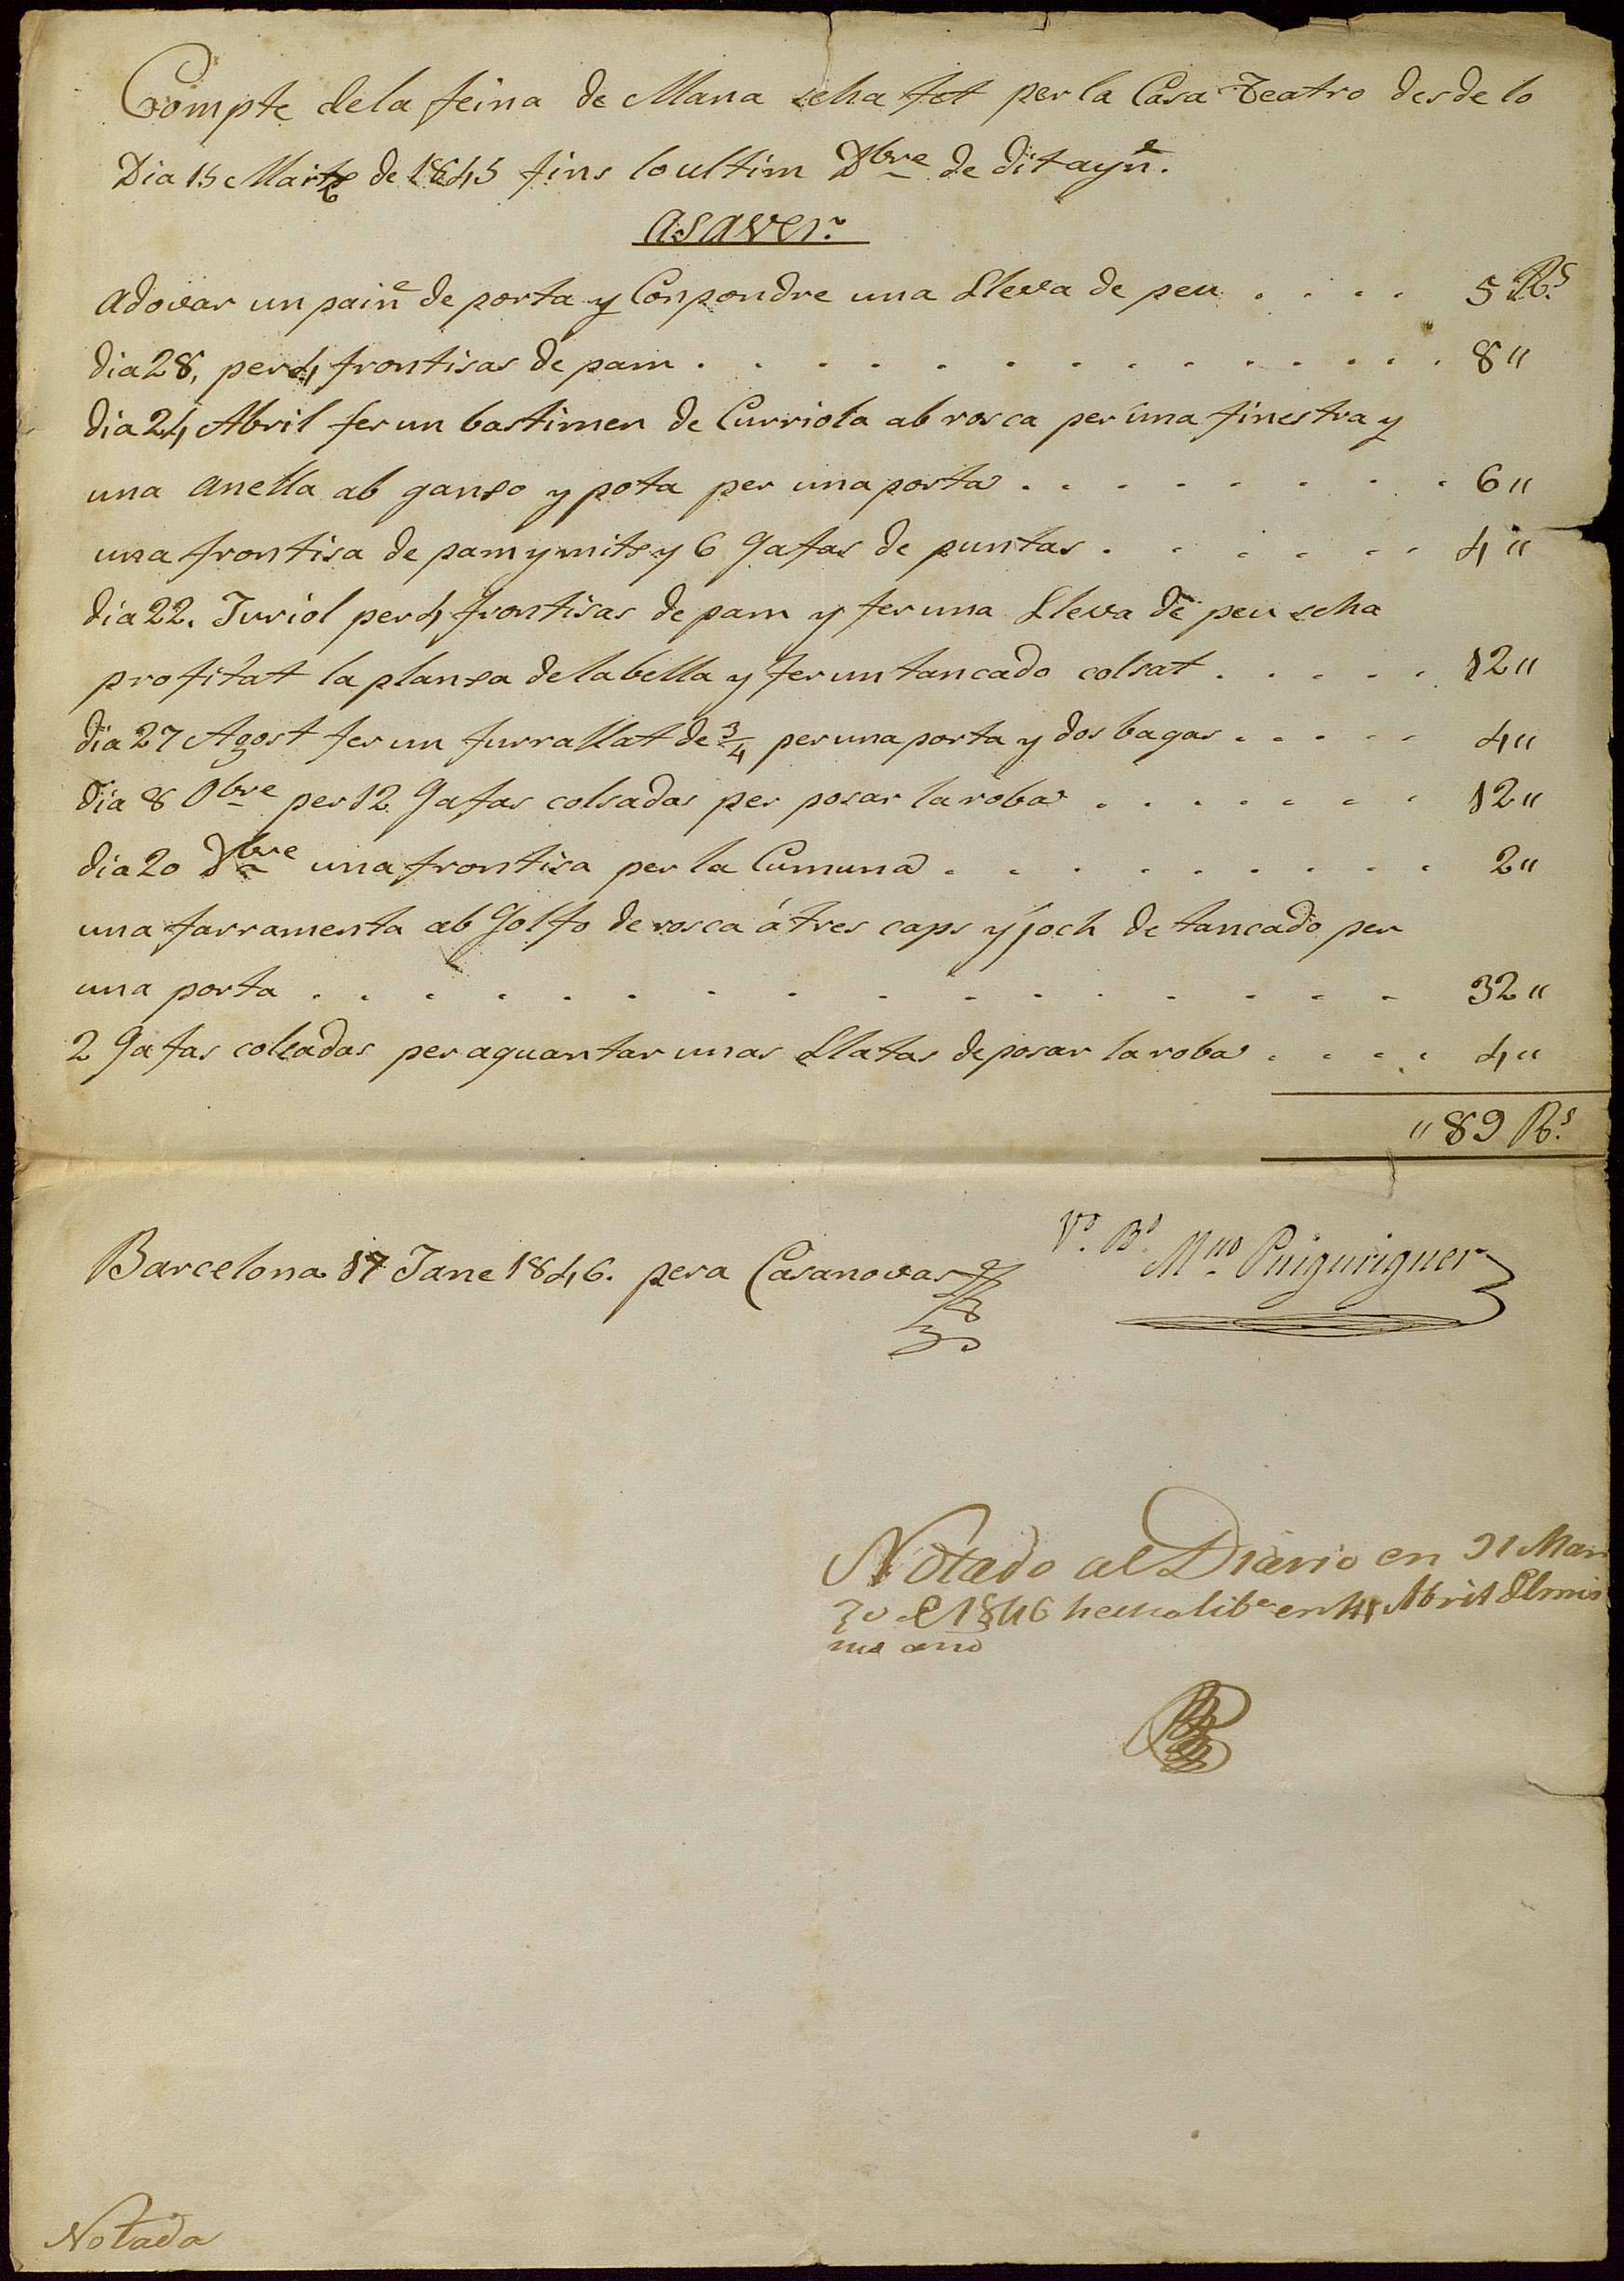 Compte dela feina de Mana seha fet per la Casa Teatro desde lo
Dia 15 Martz de 1845 fins lo ultim Dbre de dit ayñ.
asaver.
adovar un paiñ de porta y Conpondre una Lleva de peu . . . . 5 Rs.
dia 28, per 4 frontisas de pam . . . . . . . . . . . . . 8 "
dia 24 Abril fer un bastimen de Curriola ab rosca per una finestra y
una anella ab ganso y pota per una porta . . . . . . . . 6 "
una frontisa de pam y mits y 6 Gafas de puntas . . . . . . 4 "
dia 22. Juriol per 4 frontisas de pam y fer una Lleva de peu seha
profitat la plansa de labella y fer un tancado colsat . . . . . 12 "
dia 27 Agost fer un furrallat de 3/4 per una porta y dos bagas . . . . . 4 "
dia 8 Obre per 12 Gafas colsadas per posar la roba . . . . . . . 12 "
dia 20 Dbre una frontisa per la Cumuna . . . . . . . . . 2 "
una farramenta ab Golfo de rosca á tres caps y joch de tancado per
una porta . . . . . . . . . . . . . . . . 32 "
2 Gafas colsadas per aguantar unas Llatas de posar la roba . . . . 4 "
" 89 Rs.
Vo. Bo.
Barcelona 17 Jane 1846. pera Casanovas
Mno Puiguriguer
Notado al Diario en 31 Mar
zo 1846 hecha liba en Abril El mis
mo año
Notada